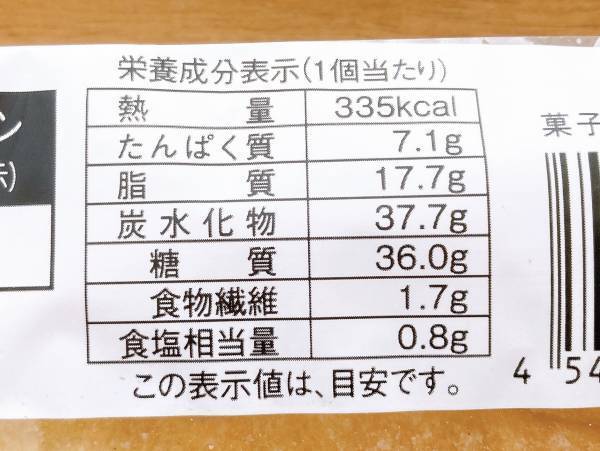 栄養成分表示(1個当たり)
熱量 335kcal
たんぱく質 7.1g
脂質 17.7g
炭水化物 37.7g
糖質 36.0g
食物繊維 1.7g
食塩相当量 0.8g
この表示値は、目安です。
ン
示)
菓子
4 54